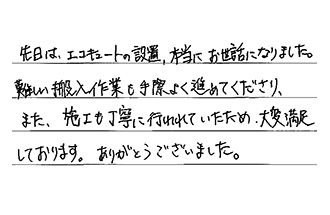 先日は、エコキュートの設置、本当にお世話になりました。
難しい搬入作業も手際よく進めてくださり、
また、施工も丁寧に行われていたため、大変満足
しております。ありがとうございました。